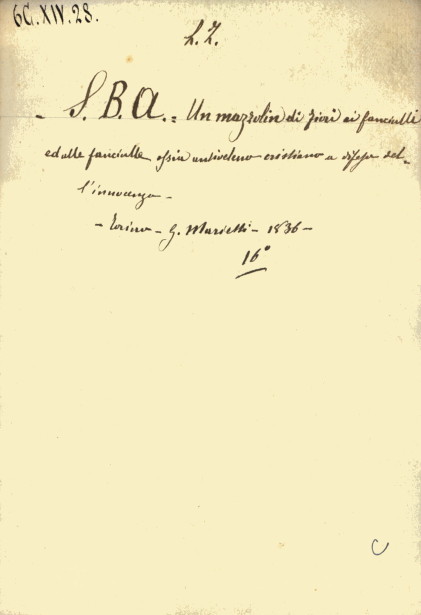 6C.XIV.28.
L.Z.
- S.B.A. = Un mazzolin di fiori ai fanciulli
ed alle fanciulle ossia antiveleno cristiano a difesa del-
l'innocenza -
- Torino - G. Marietti - 1836 -
16°
C